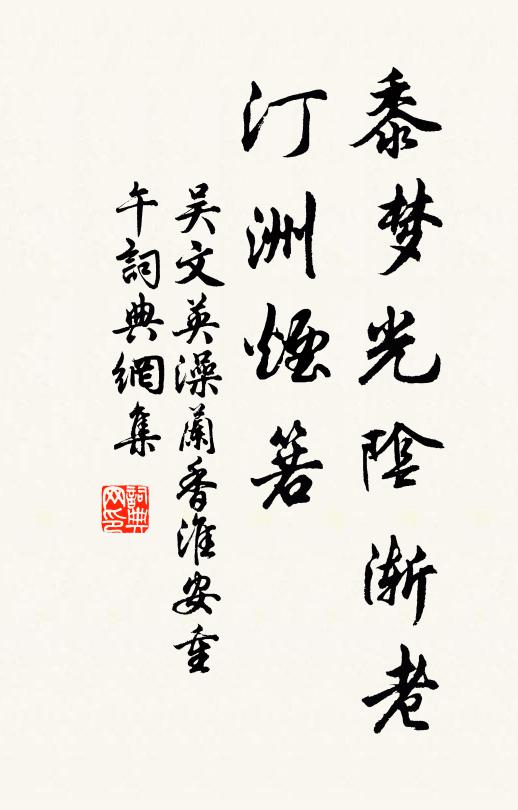 黍梦光陰渐老
汀洲煙箬
吴文英澡蘭香淮安重
午詞典網集
詞典
网印